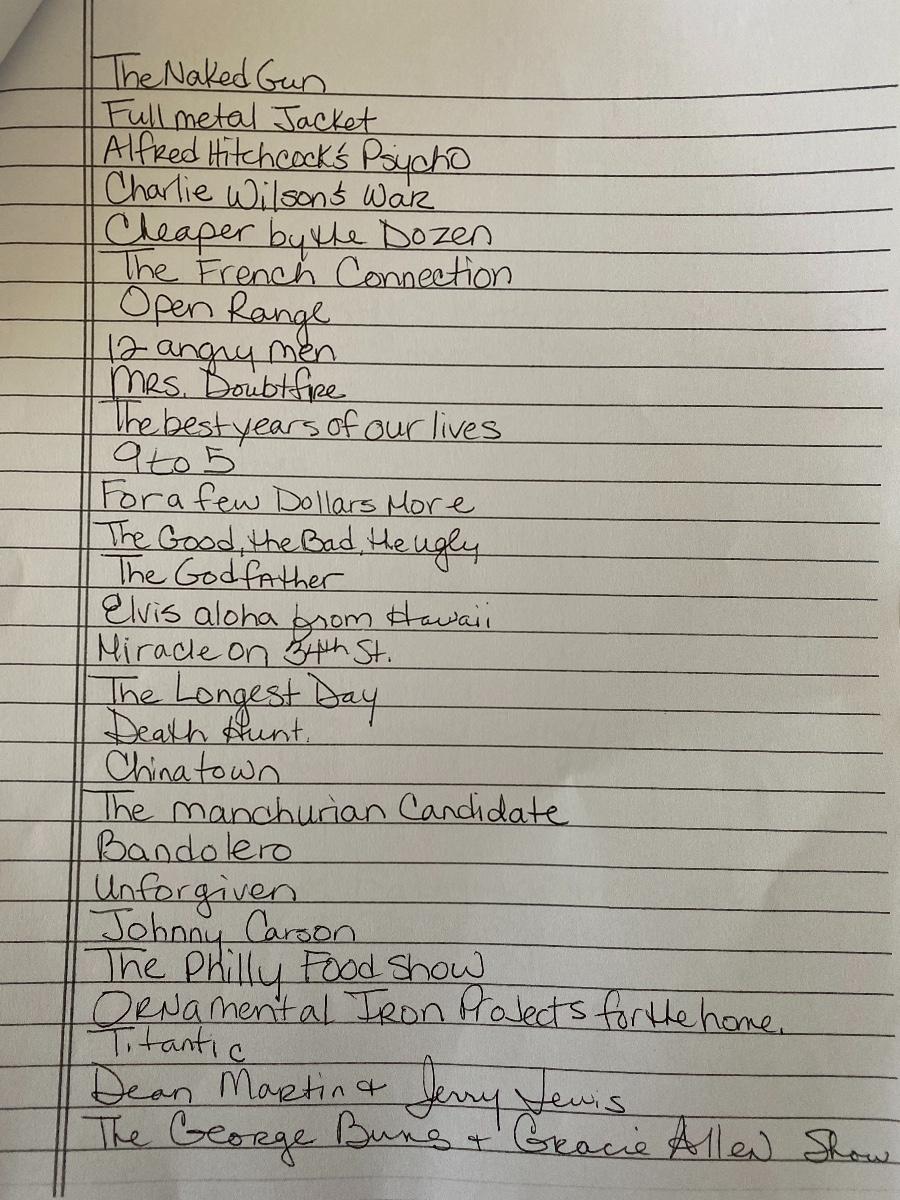 The Naked Gun
Full metal Jacket
Alfred Hitchcock's Psycho
Charlie Wilson's War
Cheaper by the Dozen
The French Connection
Open Range
12 angry men
Mrs. Doubtfire
The best years of our lives
9 to 5
For a few Dollars More
The Good, the Bad, the ugly
The Godfather
Elvis aloha from Hawaii
Miracle on 34th St.
The Longest Day
Death Hunt.
Chinatown
The manchurian Candidate
Bandolero
Unforgiven
Johnny Carson
The Philly Food Show
Ornamental Iron Projects for the home.
Titantic
Dean Martin & Jerry Lewis
The George Buns + Gracie Allen Show